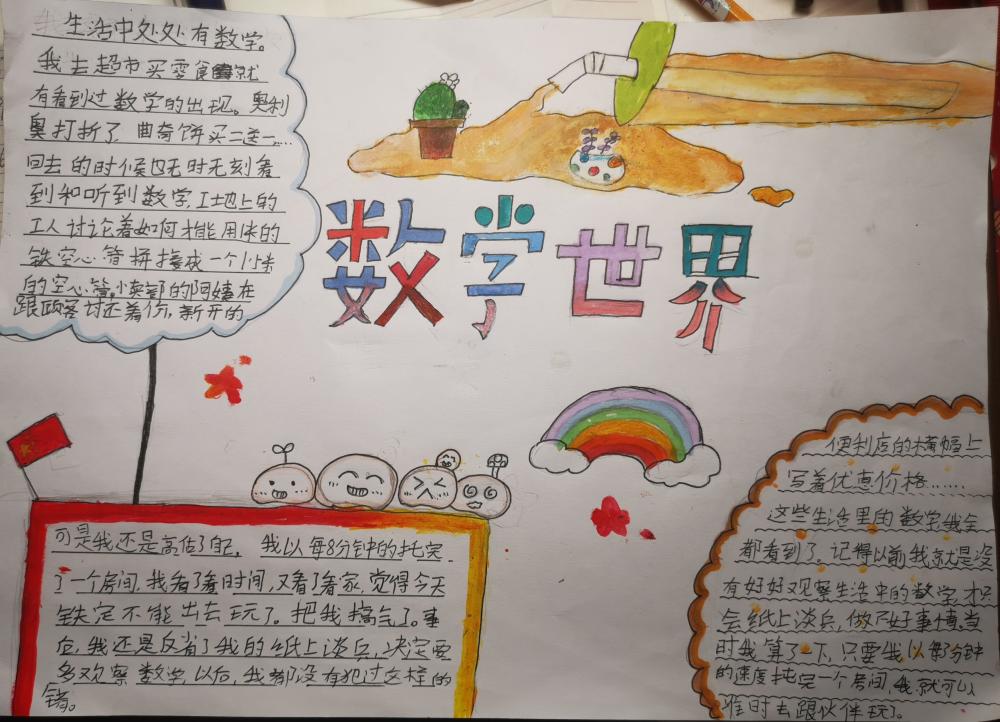 我生活中处处有数学。
我去超市买零食就
有看到过数学的出现。奥利
奥打折了，曲奇饼买二送一……
回去的时候也无时无刻看
到和听到数学，工地上的
工人讨论着如何才能用米的
铁空心管拼接成一个小米
的空心管，小卖部的阿姨在
跟顾客讨还着价，新开的
数学世界
便利店的横幅上
写着优惠价格……
这些生活里的数学我全
都看到了，记得以前我就是没
有好好观察生活中的数学，才只
会纸上谈兵，做不好事情。当
时我算了一下，只要我以每8分钟
的速度拖完一个房间，我就可以
准时去跟伙伴玩了。
可是我还是高估了自己，我以每8分钟的拖完
了一个房间，我看了看时间，又看了看家，觉得今天
铁定不能出去玩了。把我搞气了。事
后，我还是反省了我的纸上谈兵，决定要
多观察数学，以后，我都没有犯过这样的
错。